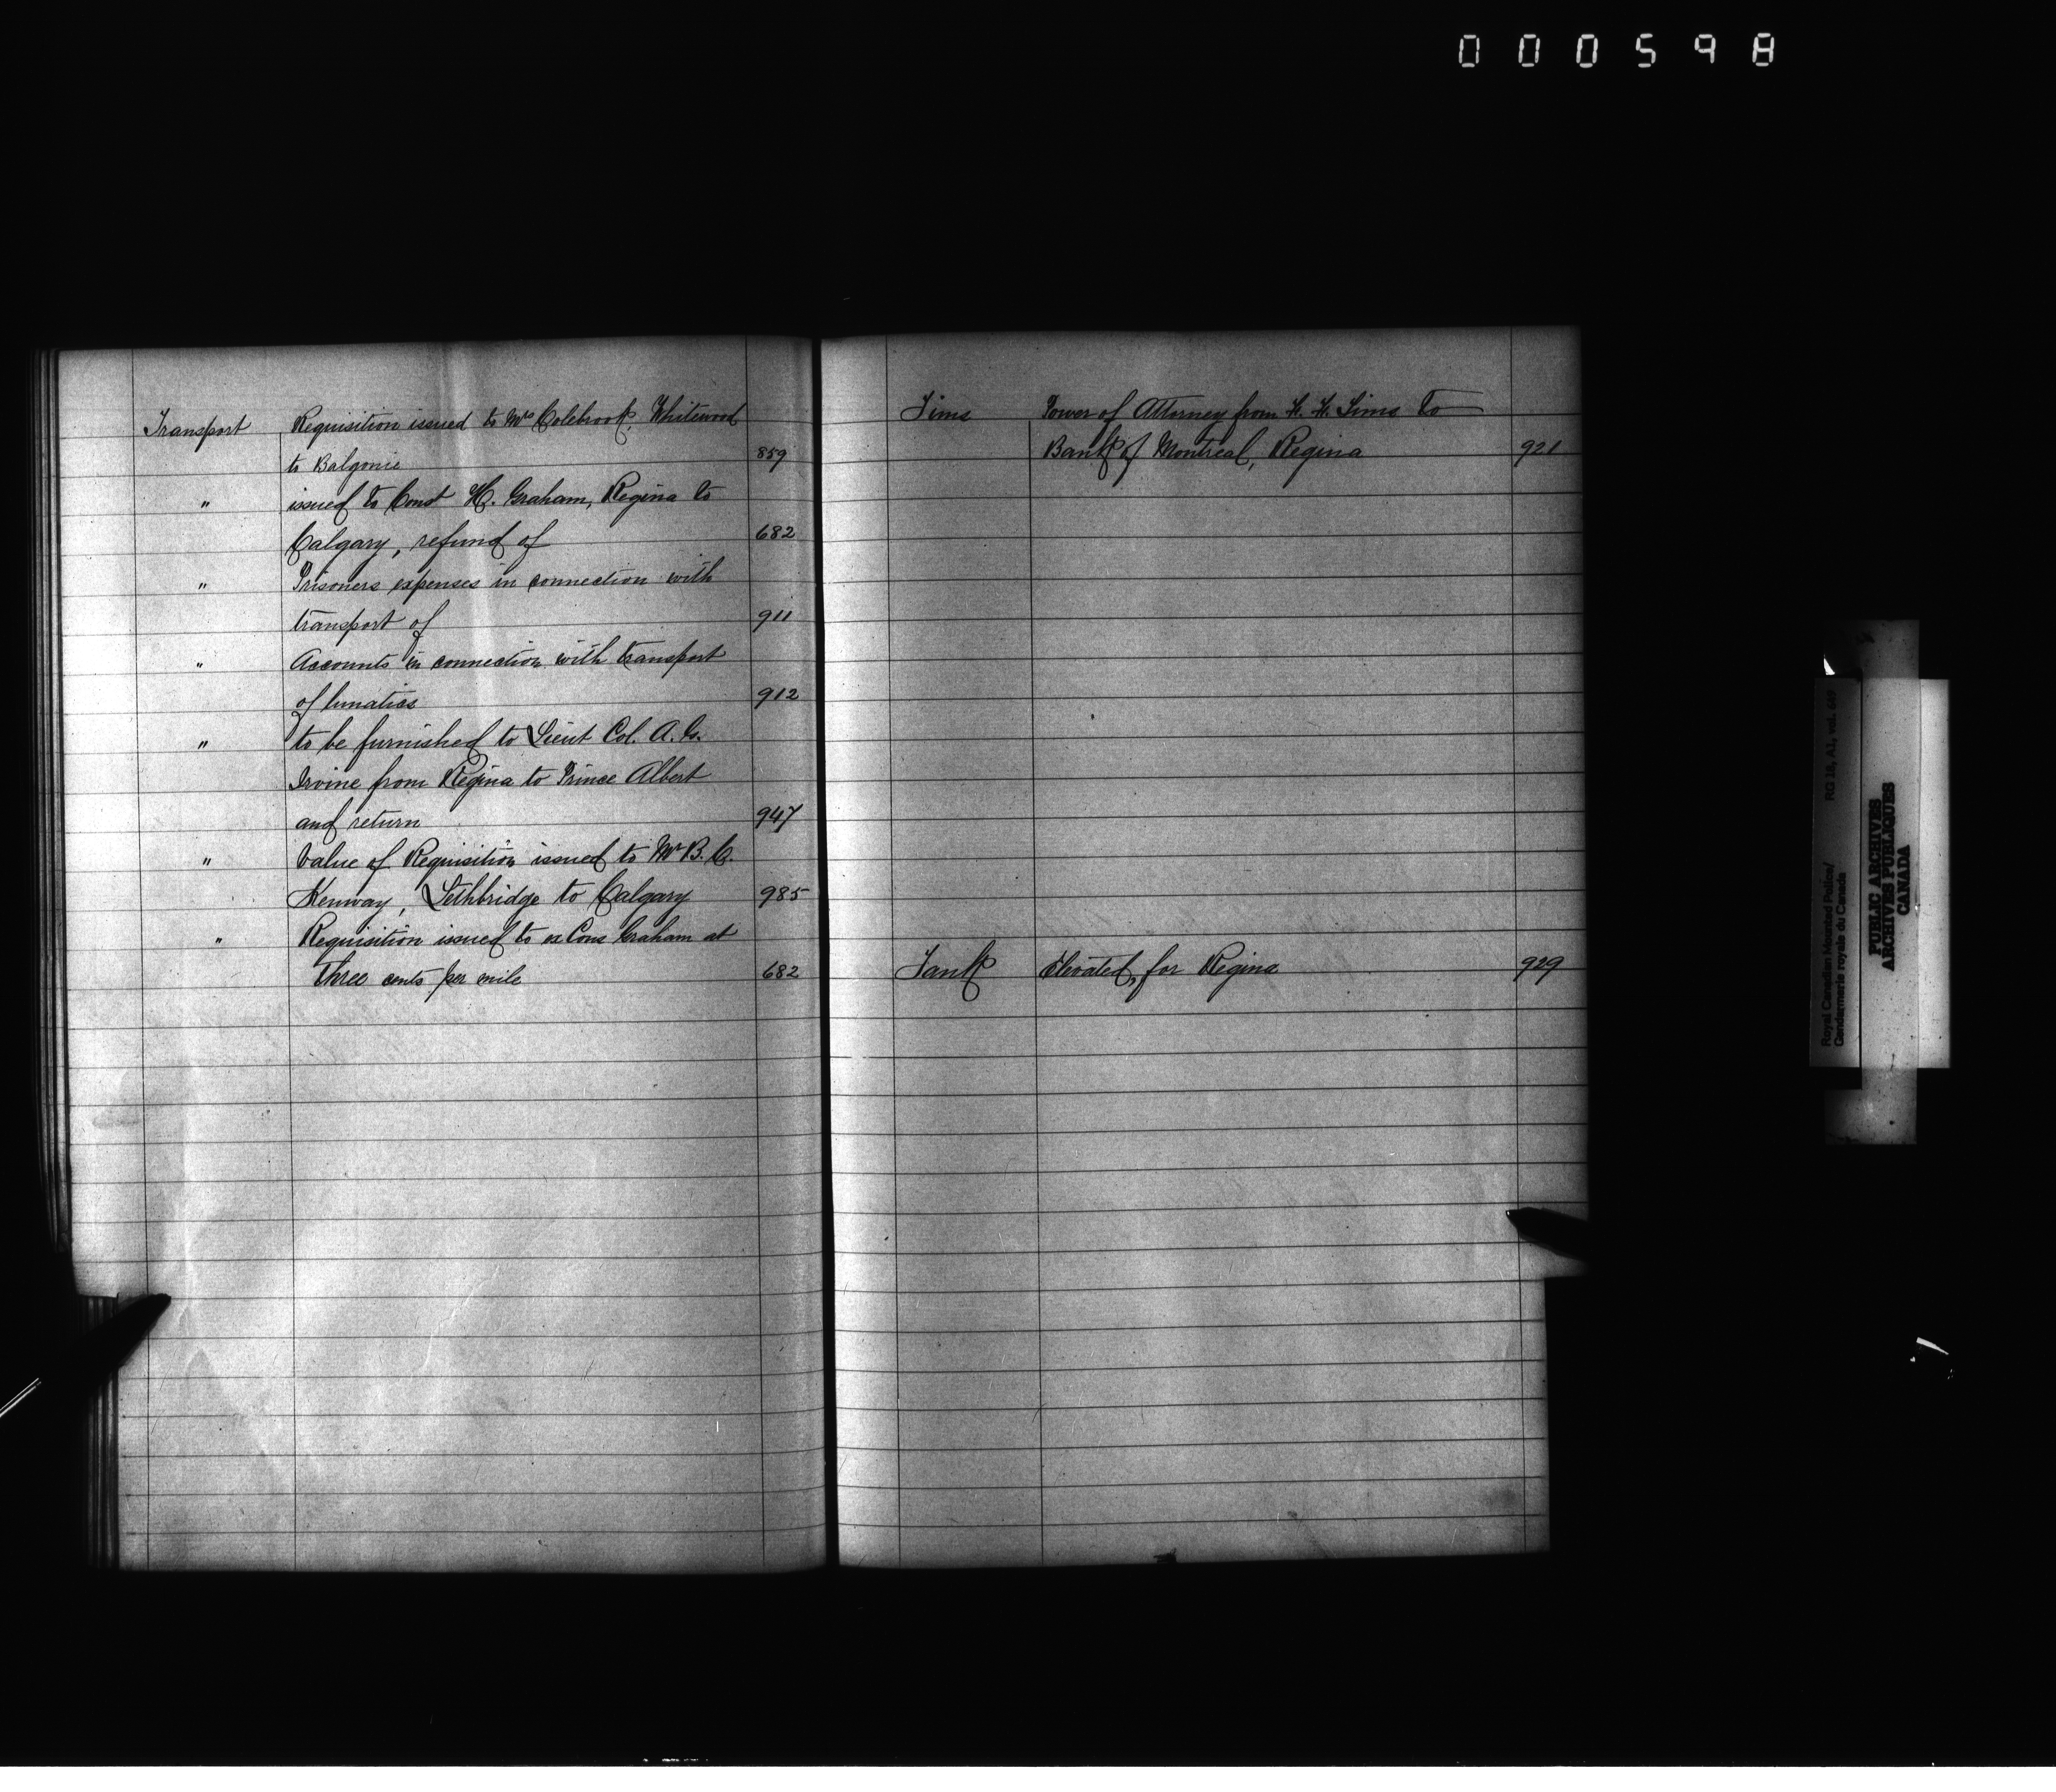 000598
Transport Requisition issued to Mrs Colebrook, Whitewood
to Balgonie 859
" issued to Const H. Graham, Regina to
Calgary, refund of 682
" Prisoners expenses in connection with
transport of 911
" Accounts in connection with transport
of lunatics 912
" to be furnished to Lieut Col. A. G.
Irvine from Regina to Prince Albert
and return 947
" Value of Requisition issued to Mr B. C.
Kenway, Lethbridge to Calgary 985
" Requisition issued to ex Cons Graham at
three cents per mile 682
Tims Power of Attorney from F. F. Tims to
Bank of Montreal, Regina 921
Tank Elevated, for Regina 929
Royal Canadian Mounted Police/
Gendarmerie royale du Canada
RG 18, A1, vol. 669
PUBLIC ARCHIVES
ARCHIVES PUBLIQUES
CANADA